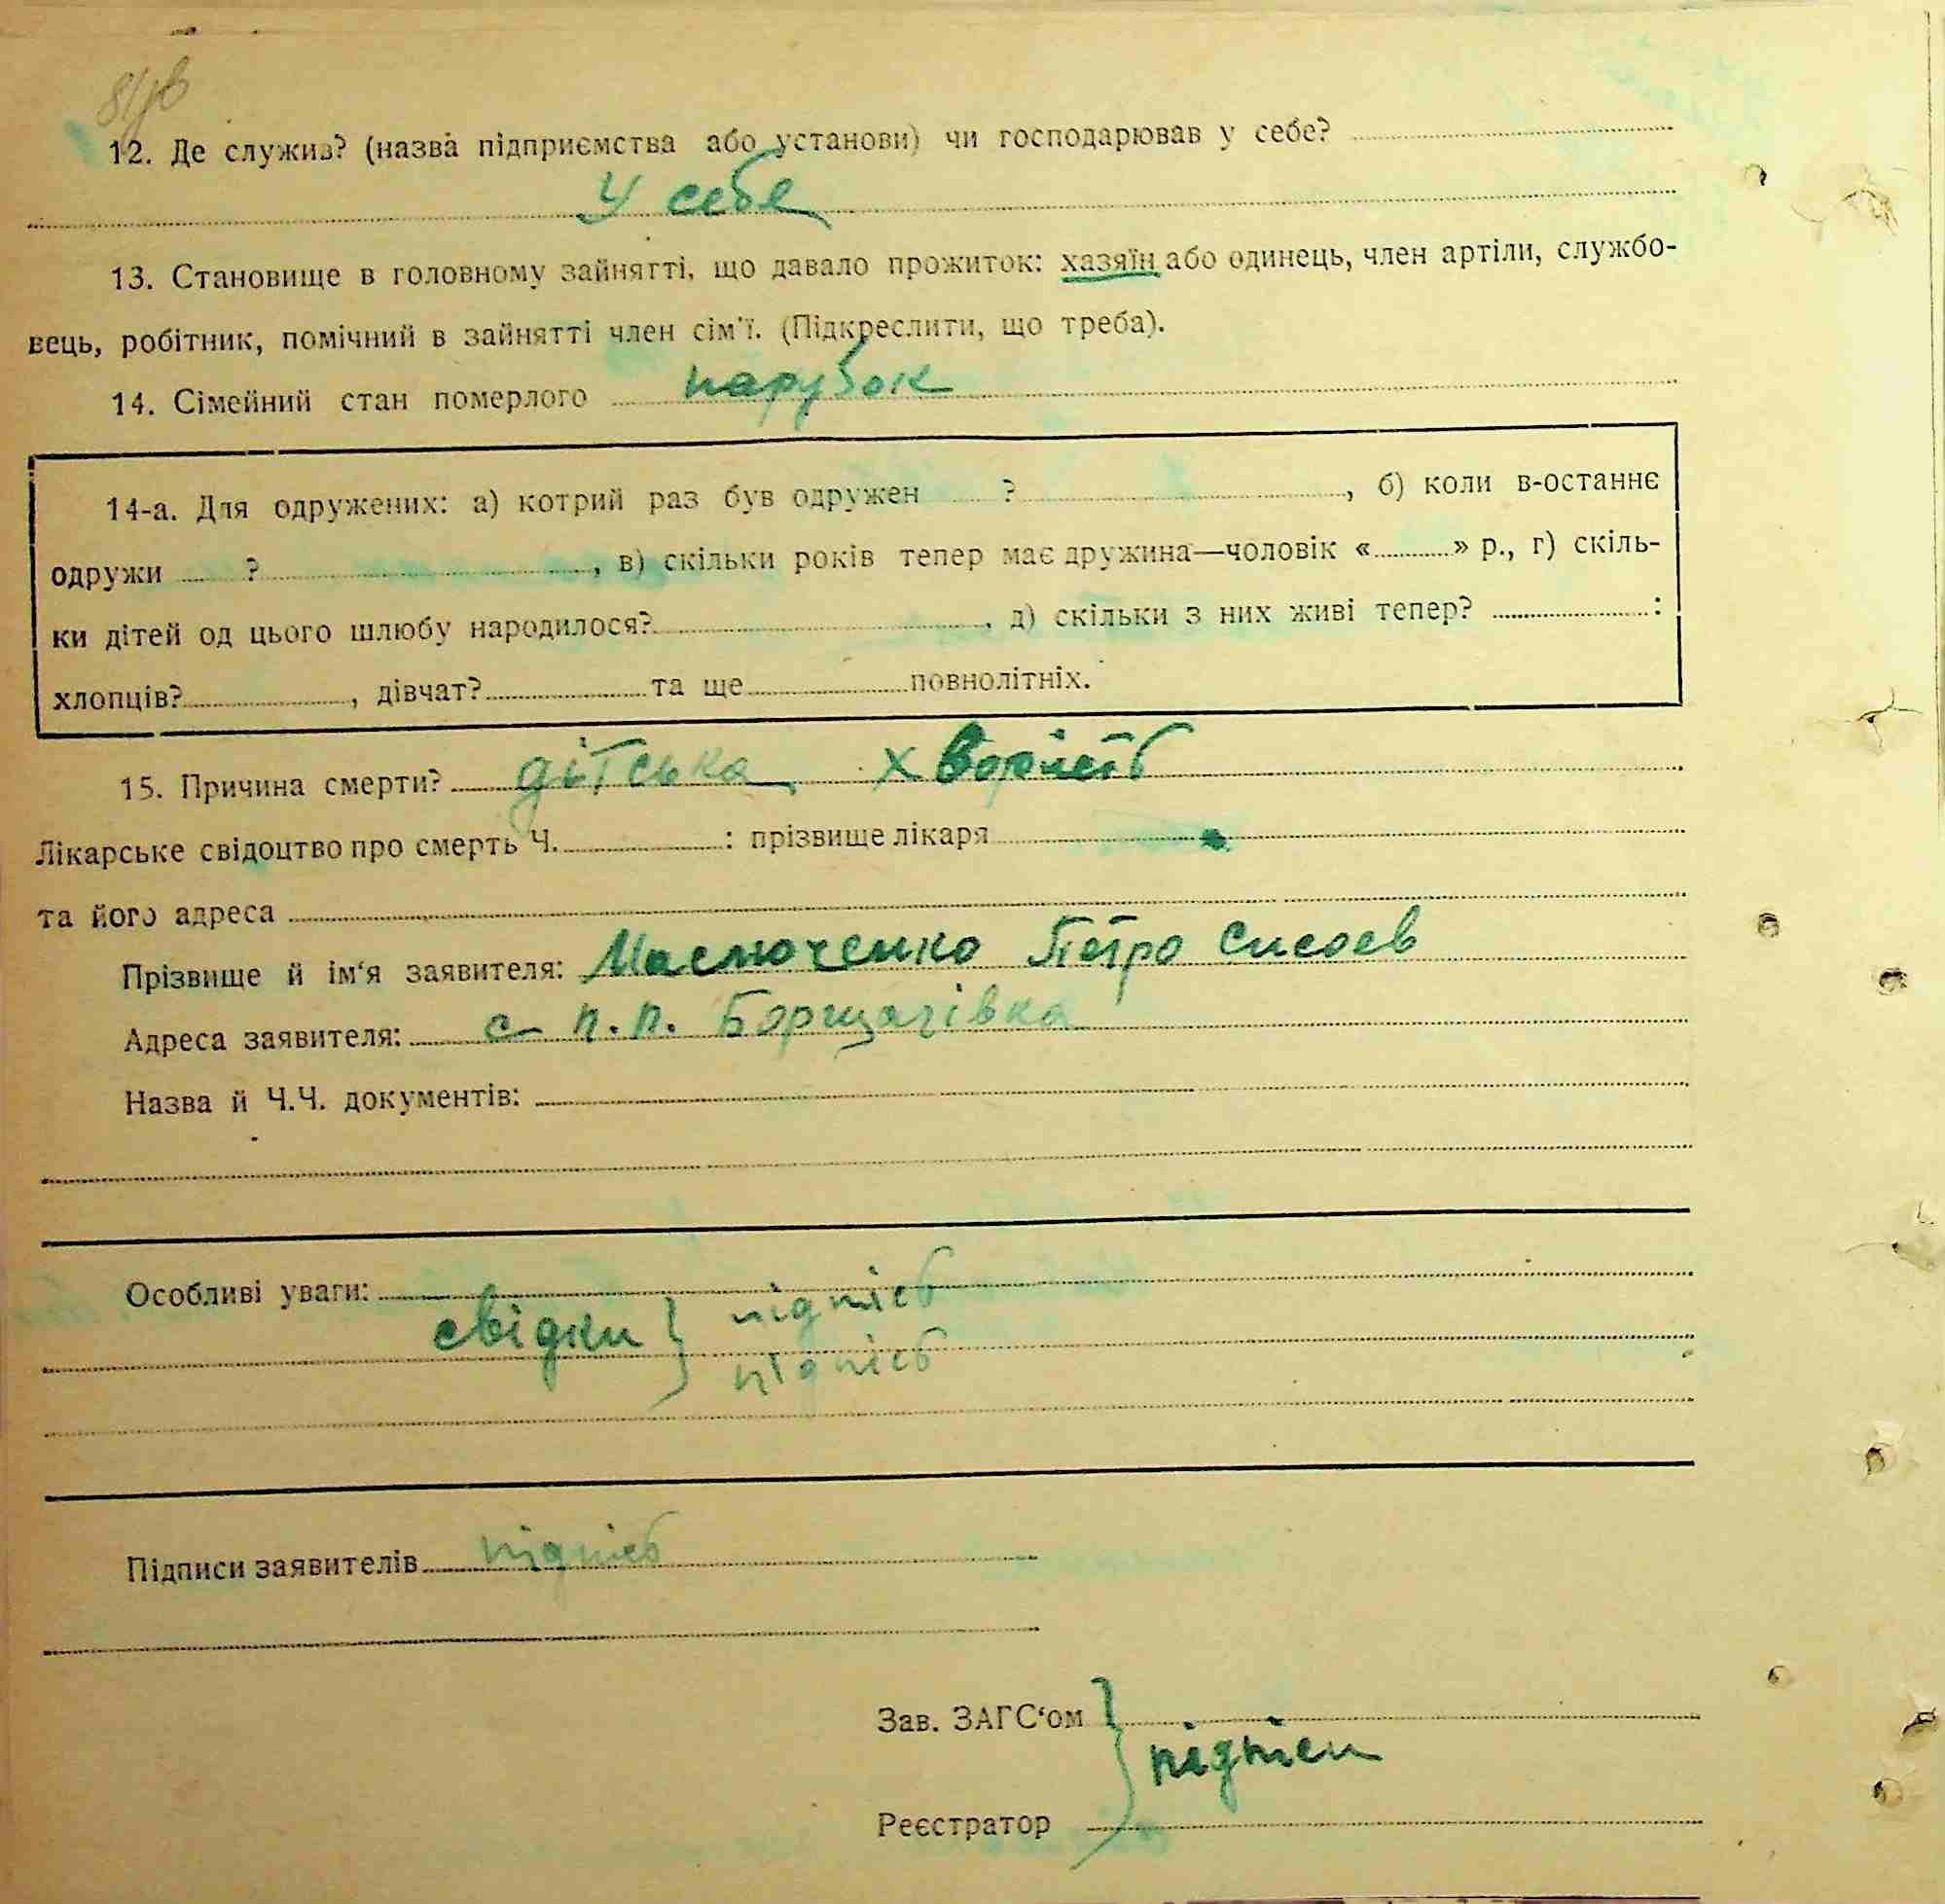 12. Де служив? (назва підприємства або установи) чи господарював у себе?
У себе
13. Становище в головному зайнятті, що давало прожиток: хазяїн або одинець, член артіли, службо-
вець, робітник, помічний в зайнятті член сім'ї. (Підкреслити, що треба).
14. Сімейний стан померлого парубок
14-а. Для одружених: а) котрий раз був одружен ?, б) коли в-останнє
одружи ?, в) скільки років тепер має дружина—чоловік « » р., г) скіль-
ки дітей од цього шлюбу народилося?, д) скільки з них живі тепер? :
хлопців?, дівчат? та ще повнолітніх.
15. Причина смерти? дітська хворість
Лікарське свідоцтво про смерть Ч. : прізвище лікаря
та його адреса
Прізвище й ім'я заявителя: Масюченко Петро Сисоев
Адреса заявителя: с п.п. Борщагівка
Назва й Ч.Ч. документів:
Особливі уваги:
свідки } підпісь
підпісь
Підписи заявителів підпісь
Зав. ЗАГС'ом }
підпіси
Реєстратор